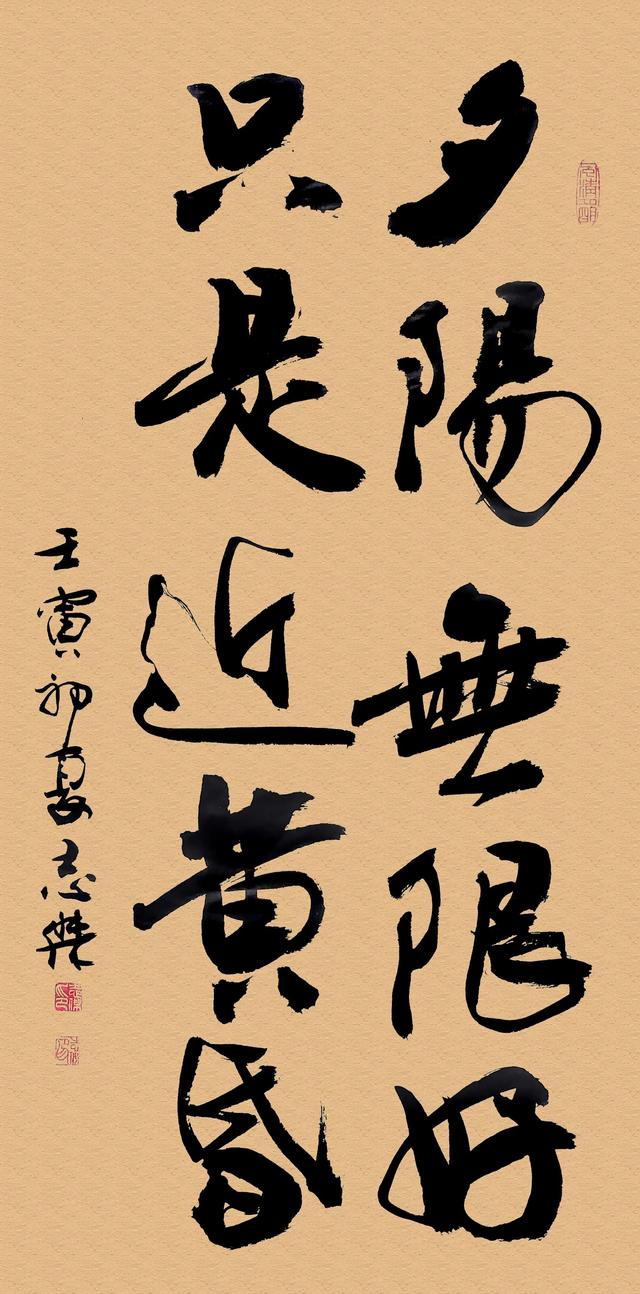 夕陽無限好
只是近黄昏
壬寅初夏志傑